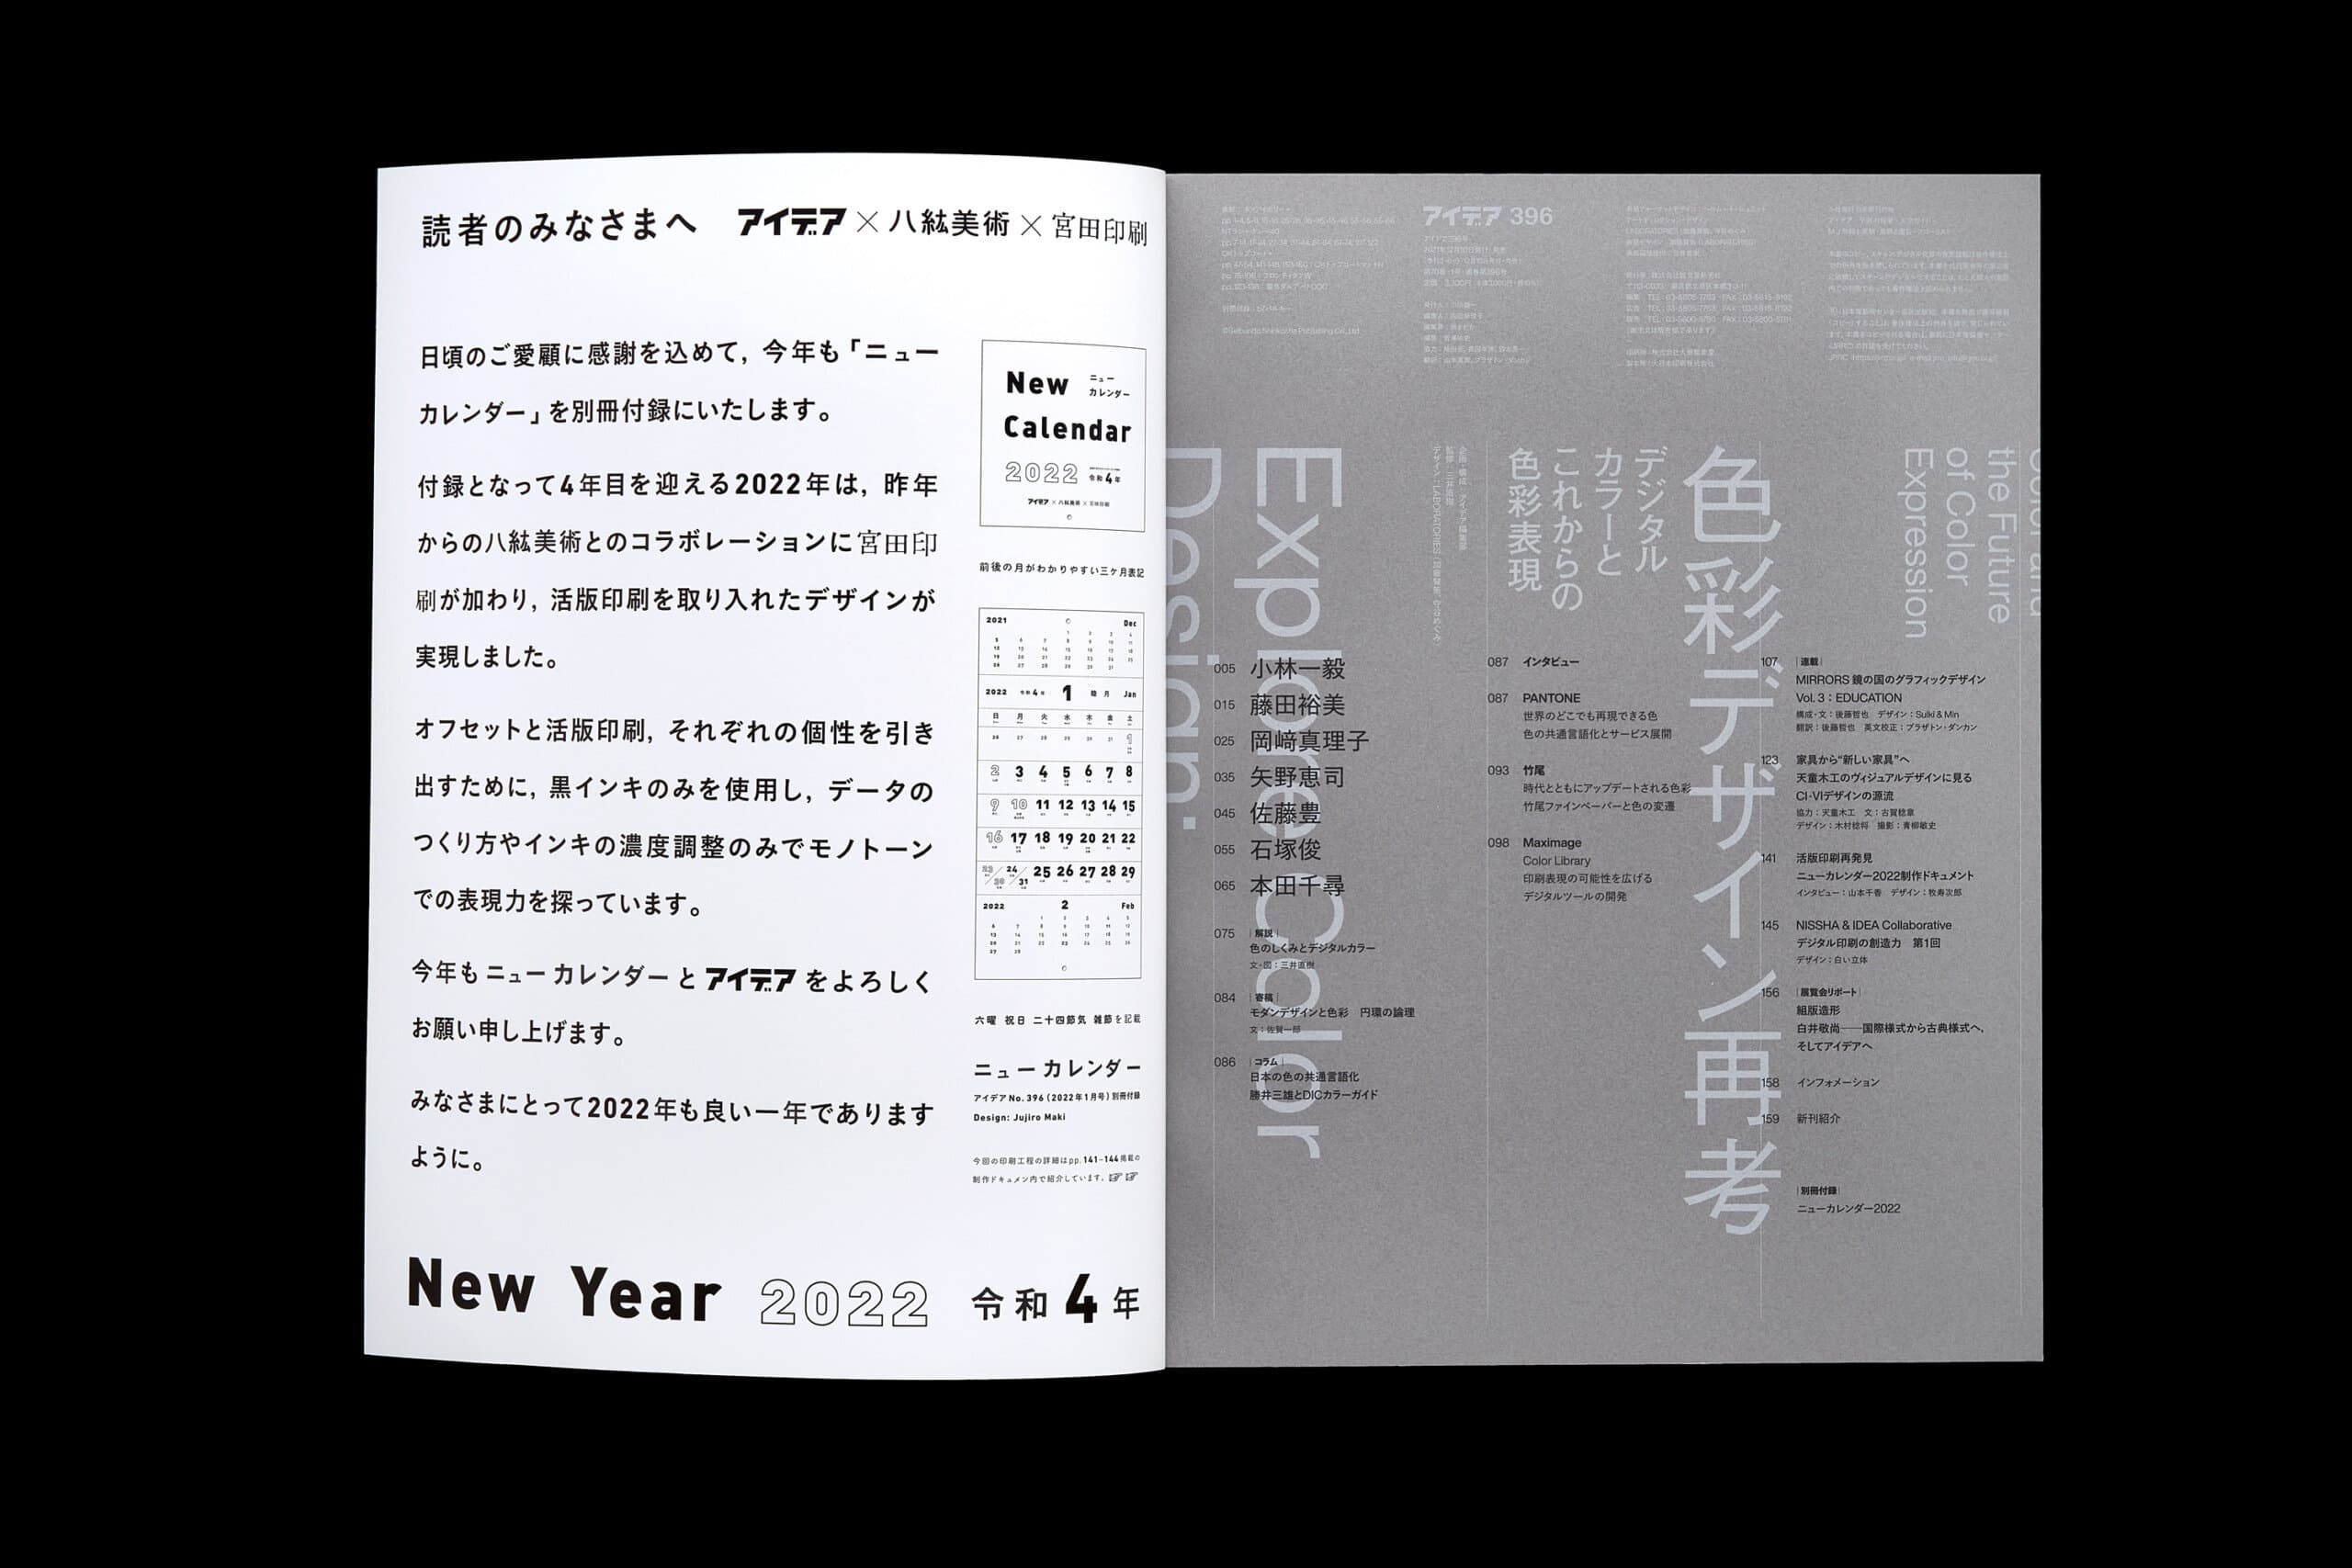 読者のみなさまへ アイデア×八紘美術×宮田印刷
日頃のご愛顧に感謝を込めて，今年も「ニュー
カレンダー」を別冊付録にいたします。
付録となって4年目を迎える2022年は，昨年
からの八紘美術とのコラボレーションに宮田印
刷が加わり，活版印刷を取り入れたデザインが
実現しました。
オフセットと活版印刷，それぞれの個性を引き
出すために，黒インキのみを使用し，データの
つくり方やインキの濃度調整のみでモノトーン
での表現力を探っています。
今年もニューカレンダーとアイデアをよろしく
お願い申し上げます。
みなさまにとって2022年も良い一年であります
ように。
New Year 2022 令和4年
New ニュー
カレンダー
Calendar
2022 令和4年
アイデア×八紘美術×宮田印刷
前後の月がわかりやすい三ヶ月表記
2021 Dec
2022 令和4年 1 睦月 Jan
日 月 火 水 木 金 土
1
2 3 4 5 6 7 8
9 10 11 12 13 14 15
16 17 18 19 20 21 22
23/30 24/31 25 26 27 28 29
2022 2 Feb
六曜 祝日 二十四節気 雑節を記載
ニューカレンダー
アイデア No.396（2022年1月号）別冊付録
Design: Jujiro Maki
今回の印刷工程の詳細はpp.141–144掲載の
制作ドキュメン内で紹介しています。☞☞
アイデア 396
©Seibundo Shinkosha Publishing Co.,Ltd.
Explore Color
Design.
デジタル
カラーと
これからの
色彩表現
色彩デザイン再考
the Future
of Color
Expression
005 小林一毅
015 藤田裕美
025 岡﨑真理子
035 矢野恵司
045 佐藤豊
055 石塚俊
065 本田千尋
075 ｜解説｜
色のしくみとデジタルカラー
文・図：三井直樹
084 ｜寄稿｜
モダンデザインと色彩 円環の論理
文：佐賀一郎
086 ｜コラム｜
日本の色の共通言語化
勝井三雄とDICカラーガイド
087 インタビュー
087 PANTONE
世界のどこでも再現できる色
色の共通言語化とサービス展開
093 竹尾
時代とともにアップデートされる色彩
竹尾ファインペーパーと色の変遷
098 Maximage
Color Library
印刷表現の可能性を広げる
デジタルツールの開発
107 ｜連載｜
MIRRORS 鏡の国のグラフィックデザイン
Vol. 3：EDUCATION
構成・文：後藤哲也 デザイン：Sulki & Min
翻訳：後藤哲也 英文校正：ブラザトン・ダンカン
123 家具から“新しい家具”へ
天童木工のヴィジュアルデザインに見る
CI・VIデザインの源流
協力：天童木工 文：古賀稔章
デザイン：木村稔将 撮影：青柳敏史
141 活版印刷再発見
ニューカレンダー2022制作ドキュメント
インタビュー：山本千香 デザイン：牧寿次郎
145 NISSHA & IDEA Collaborative
デジタル印刷の創造力 第1回
デザイン：白い立体
156 ｜展覧会リポート｜
組版造形
白井敬尚──国際様式から古典様式へ，
そしてアイデアへ
158 インフォメーション
159 新刊紹介
｜別冊付録｜
ニューカレンダー2022